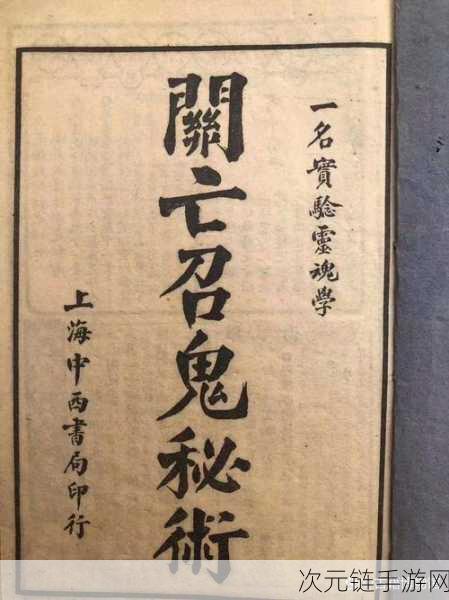 一名實驗靈魂學
關亡召鬼秘術
上海中西書局印行
次元链手游网